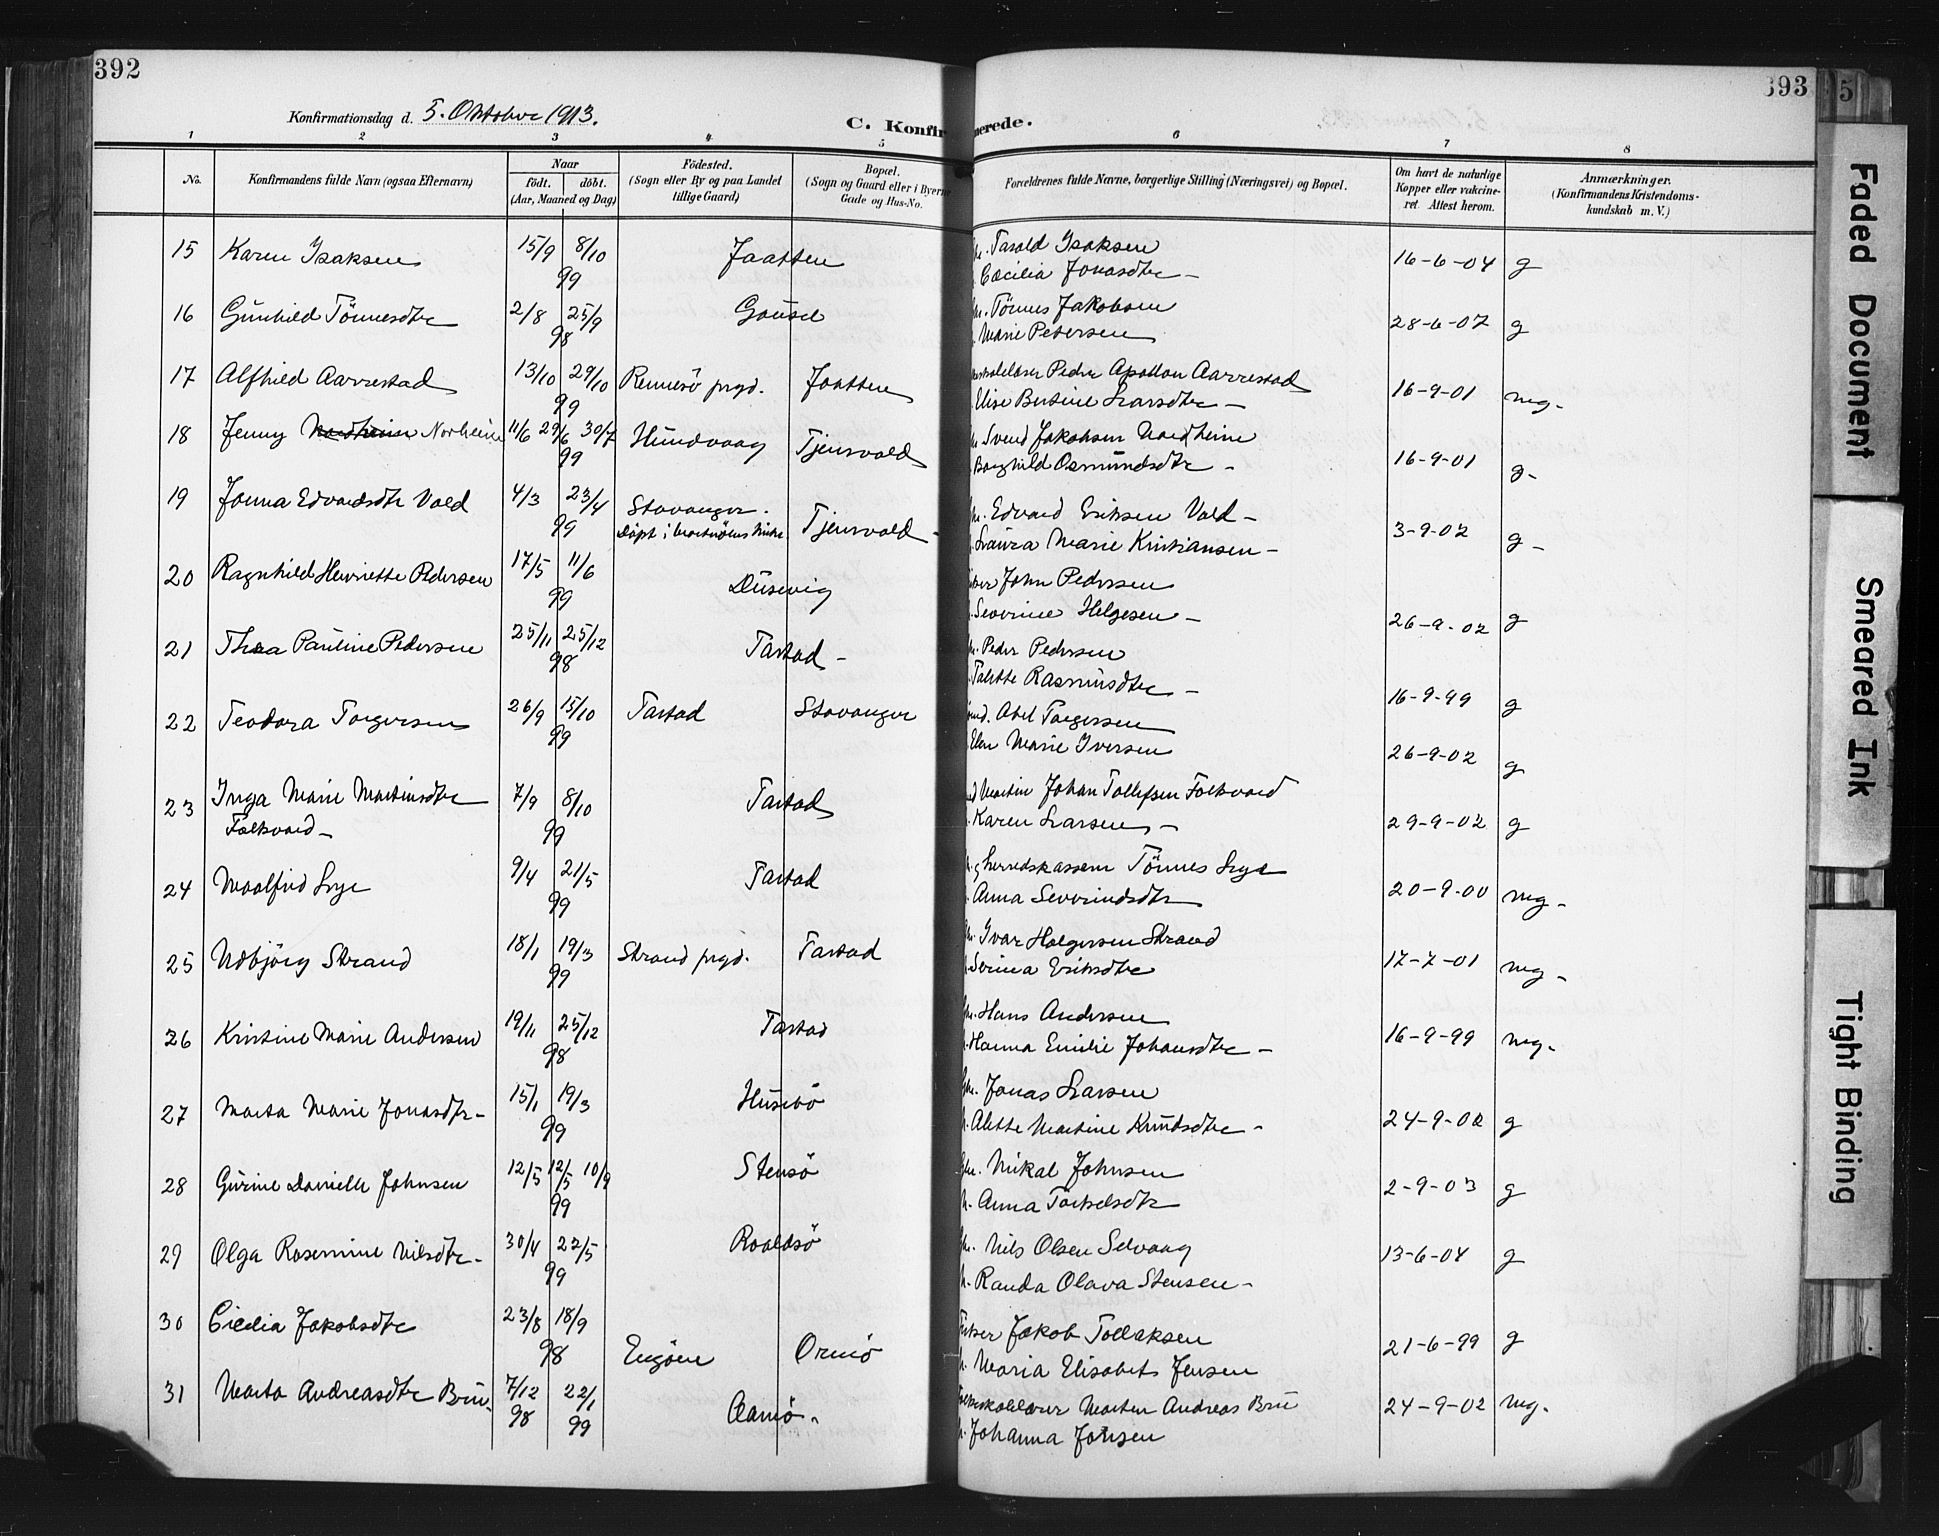 392
393
5
Konfirmationsdag d. 5. Oktober 1913.
C. Konfirmerede.
1 2 3 4 5 6 7 8
No. Konfirmandens fulde Navn (ogsaa Efternavn) Naar født. døbt. (Aar, Maaned og Dag) Födested. (Sogn eller By og paa Landet tillige Gaard) Bopæl. (Sogn og Gaard eller i Byerne Gade og Hus-No. Forældrenes fulde Navne, borgerlige Stilling (Næringsvei) og Bopæl. Om havt de naturlige Kopper eller vakcineret. Attest herom. Anmærkninger. (Konfirmandens Kristendomskundskab m. V.)
15 Karen Isaksen 15/9 8/10 99 Jaatten Tarald Isaksen 16-6-04 g
Cæcilia Jonasdtr –
16 Gunhild Tönnesdtr 2/8 25/9 98 Gausel Tönnes Jakobsen 28-6-07 g
Marie Petersen
17 Alfhild Aarrestad 13/10 29/10 99 Rennesö prgd. Jaatten Peder Apollon Aarrestad 16-9-01 mg.
Elise Bertine Larsdtr –
18 Jenny Nordheim Norheim 11/6 29/6 30/7 99 Hundvaag Tjensvold Svend Jakobsen Nordheim 16-9-01 g.
Borghild Osmundsdtr –
19 Jonna Edvardsdtr Vold 4/3 23/4 99 Stavanger. Tjensvold – Edvard Eriksen Vold – 3-9-02 g –
Döpt i
Laura Marie Kristiansen –
20 Ragnhild Henriette Pedersen 17/5 11/6 99 Dusevig John Pedersen 26-9-02 g
Severine Helgesen –
21 Thea Pauline Pedersen 25/11 25/12 98 Tastad – Peder Pedersen 16-9-99 g
Talette Rasmusdtr –
22 Teodora Torgersen 26/9 15/10 99 Tastad Stavanger Abel Torgersen 26-9-02 g
Elen Marie Iversen
23 Inga Marie Martinsdtr 7/9 8/10 99 Tastad Martin Johan Tollefsen Folkvord 29-9-02 g
Folkvord –
Karen Larsen –
24 Maalfrid Lye 9/4 21/5 99 Tastad herredskasserer Tönnes Lye 20-9-00 mg –
Anna Severindsdtr
25 Udbjörg Strand 18/1 19/3 99 Strand prgd. Tastad Ivar Holgersen Strand 17-7-01 mg –
Serina Eriksdtr
26 Kristine Marie Andersen 19/11 25/12 98 Tastad Hans Andersen 16-9-99 mg.
Hanna Emilie Johansdtr –
27 Marta Marie Jonasdtr – 15/1 19/3 99 Husebö Gm. Jonas Larsen 24-9-02 g
Alette Martine Knudsdtr –
28 Gurine Danielle Johnsen 12/5 12/5 10/9 99 Stensö Mikal Johnsen 2-9-03 g
Anna Torkelsdtr
29 Olga Rosemine Nilsdtr – 30/4 22/5 99 Roaldsö Gm. Nils Olsen Selvaag 13-6-04 g
Randa Olava Stensen –
30 Cicelia Jakobsdtr 23/8 18/9 98 Engöen Ormö Jakob Tollaksen 21-6-99 g
Maria Elisabet Jensen
31 Marta Andreasdtr Bru. 7/12 98 22/1 99 Aamö – Morten Andreas Bru 24-9-02 mg.
Johanna Jonsen
Faded Document
Smeared Ink
Tight Binding